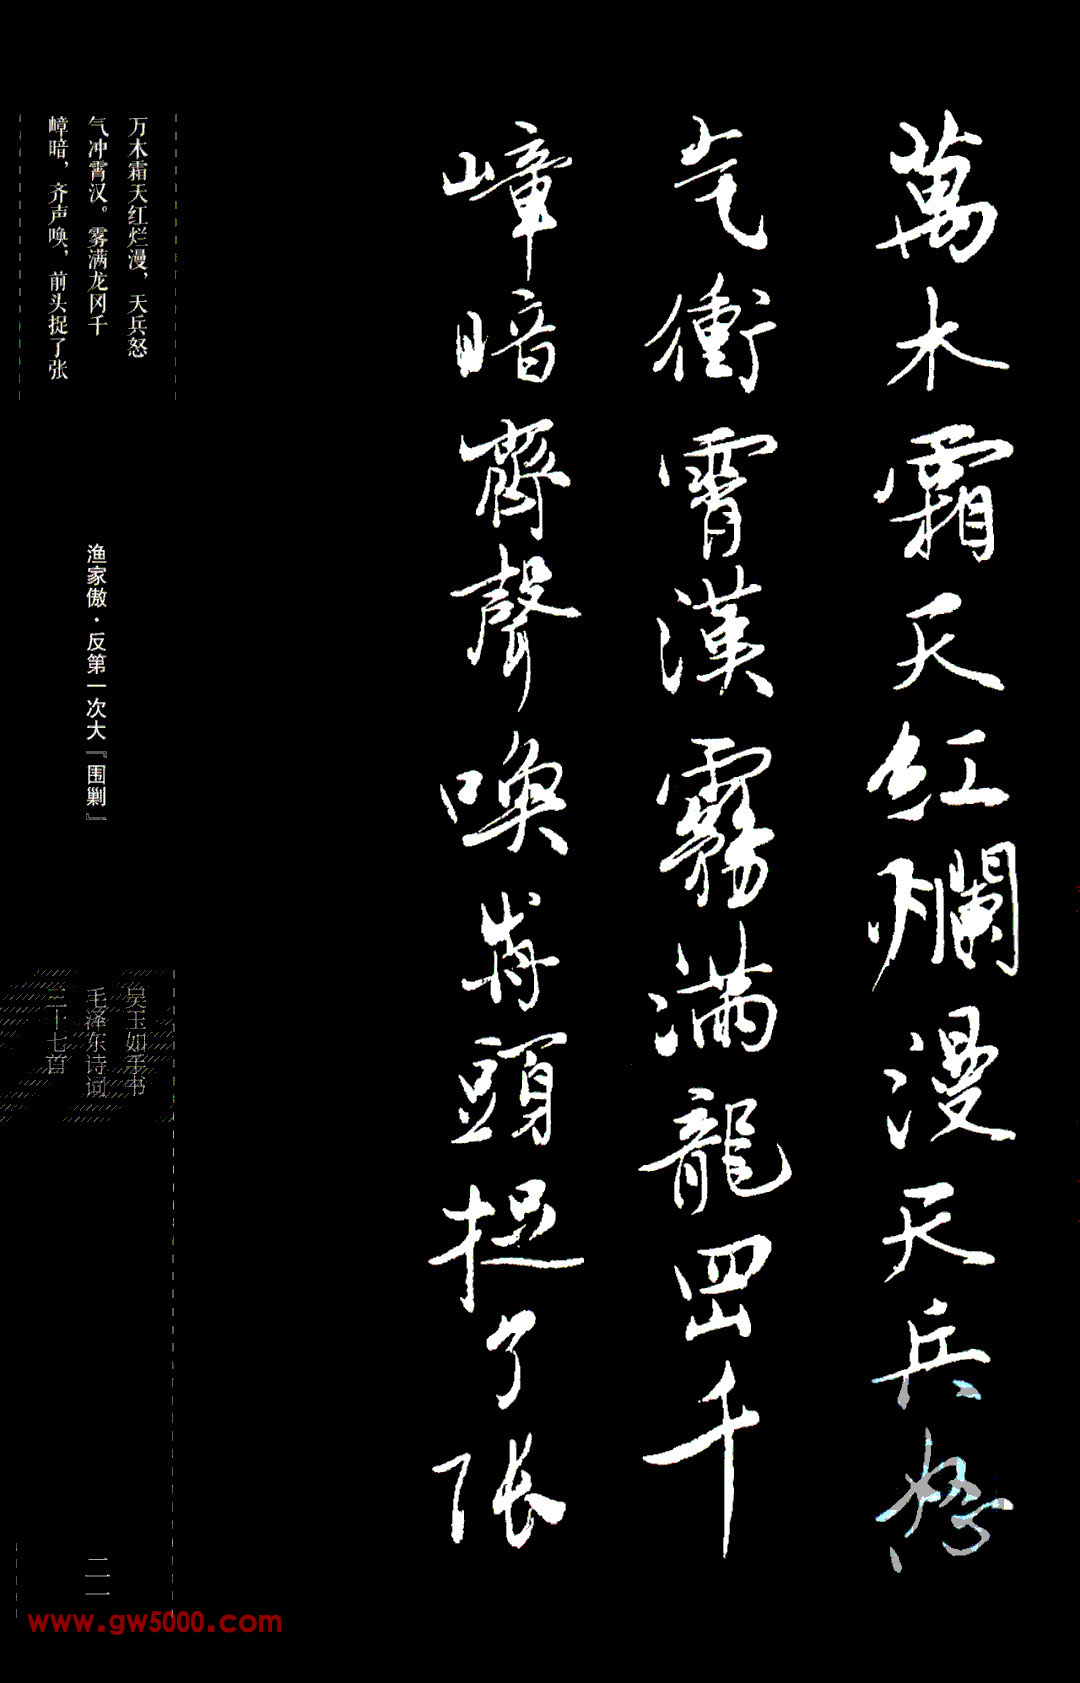 萬木霜天紅爛漫天兵怒
气衝霄漢霧满龍罡千
嶂暗齊聲喚前頭捉了张
万木霜天红烂漫，天兵怒
气冲霄汉。雾满龙冈千
嶂暗，齐声唤，前头捉了张
渔家傲·反第一次大『围剿』
吴玉如手书
毛泽东诗词
三十七首
二一
www.gw5000.com